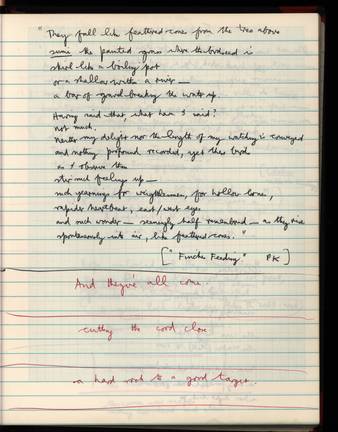 "They fall like feathered cones from the tree above
sumi the painted grass where the birdseed is
skirl like a boiling pot
or a shallow within a river —
a bar of gravel breaking the water up.
Having said that, what have I said?
not much.
Neither my delight nor the length of my watching is conveyed
and nothing profound recorded, yet these birds
as I observe them
stir such feelings up —
such yearnings for weightlessness, for hollow bones,
rapider heartbeat, east/west eyes
and such wonder — seemingly half remembered — as they rise
spontaneously into air, like feathered cones."
["Finches Feeding" PK]
And they've all come.
cutting the cord close
a hard rock to a good target.